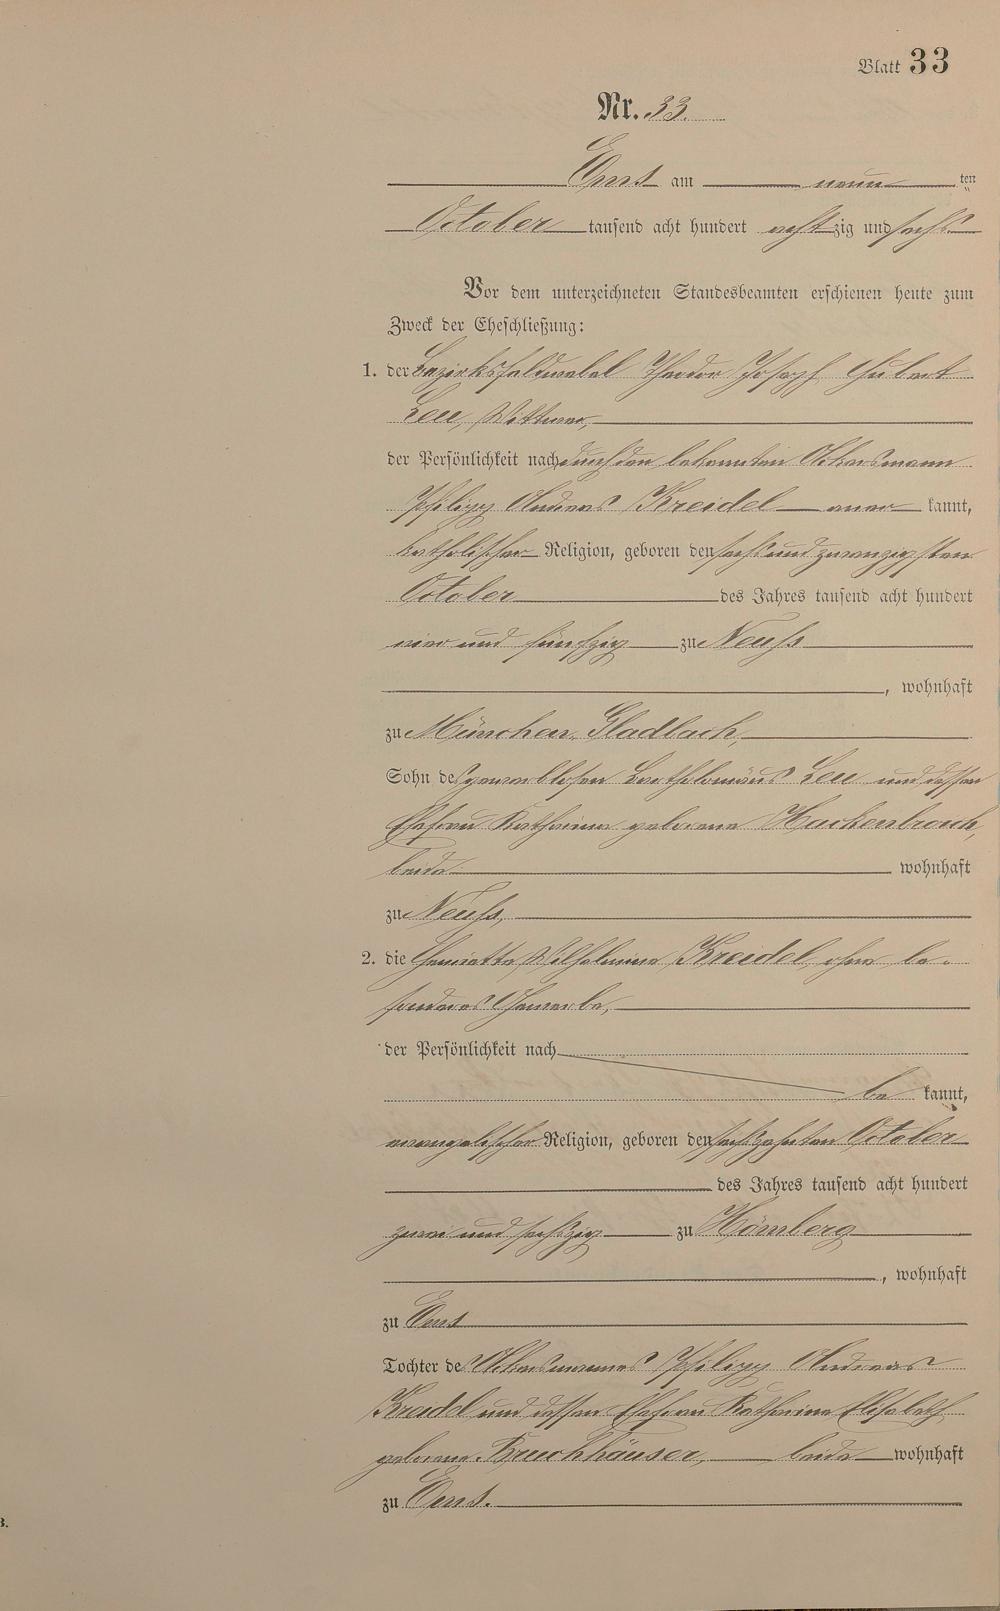 Blatt 33
Nr. 33.
Ems am neun ten
October tausend acht hundert achtzig und sechs
Vor dem unterzeichneten Standesbeamten erschienen heute zum
Zweck der Eheschließung:
1. der Bezirksfeldwebel Theodor Joseph Hubert
Leu, Wittwer,
der Persönlichkeit nach durch den bekannten Ackersmann
Philipp Andreas Kreidel aner kannt,
katholischer Religion, geboren den sechs und zwanzigsten
October des Jahres tausend acht hundert
vier und fünfzig zu Neuss
, wohnhaft
zu München Gladbach,
Sohn des gewerblosen Bartholomäus Leu und dessen
Ehefrau Katharina geborene Hackenbroich,
beide wohnhaft
zu Neuss,
2. die Henriette Wilhelmine Kreidel, ohne be-
sonderes Gewerbe,
der Persönlichkeit nach
be kannt,
evangelischer Religion, geboren den sechszehnten October
des Jahres tausend acht hundert
zwei und sechszig zu Hömberg
, wohnhaft
zu Ems
Tochter des Ackersmannes Philipp Andreas
Kreidel und dessen Ehefrau Katharina Elisabeth
geborene Bruchhäuser, beide wohnhaft
zu Ems.
B.